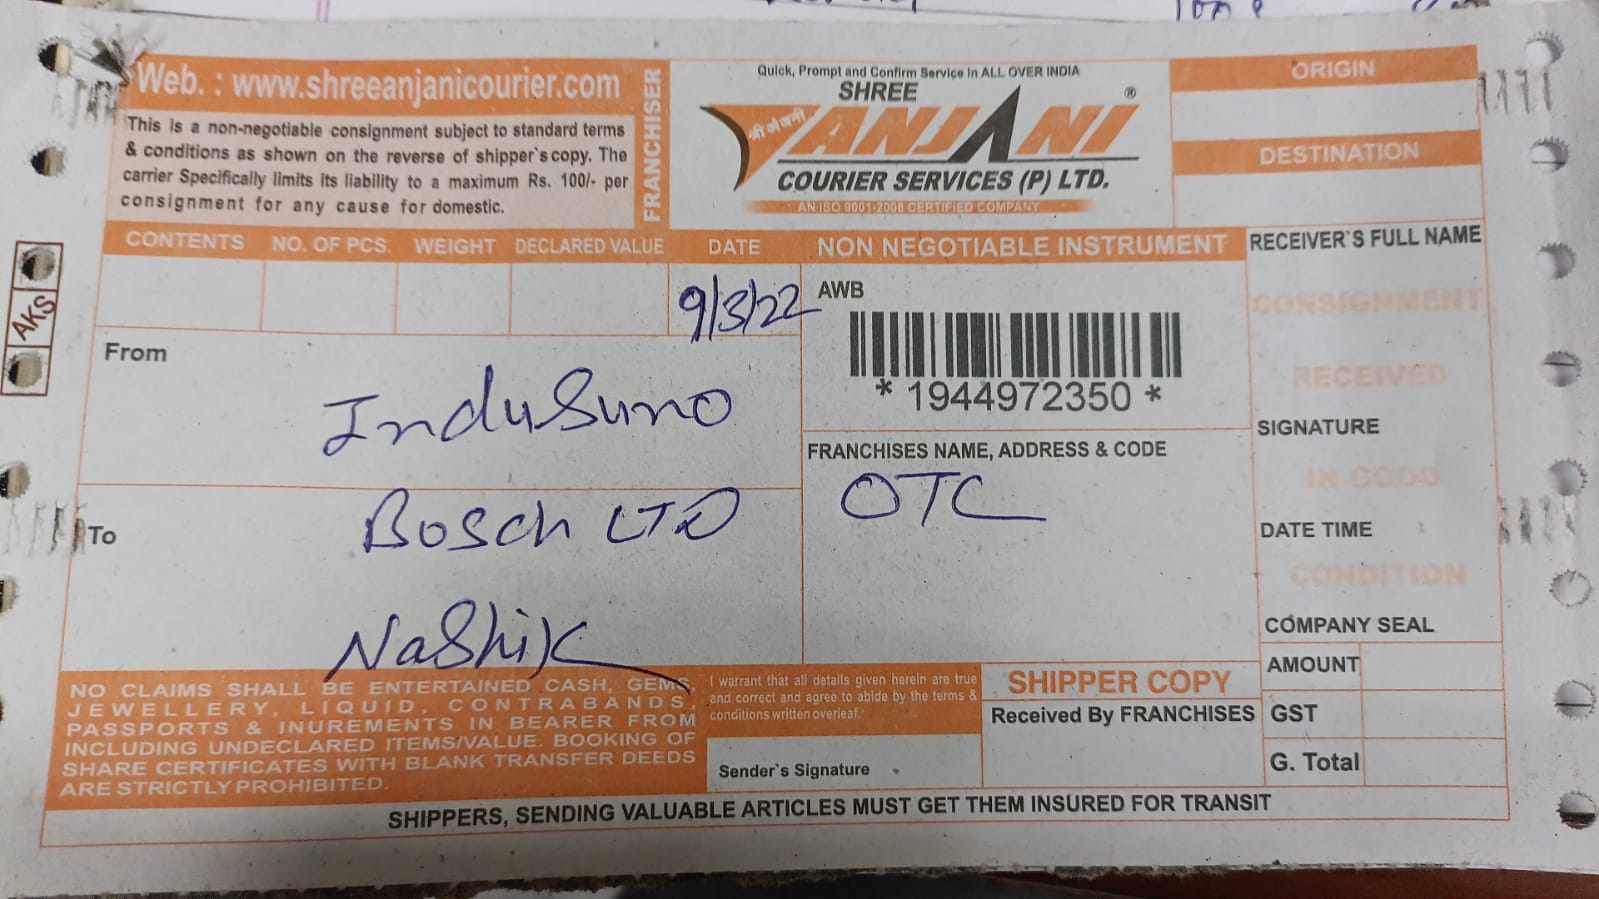 Web. : www.shreeanjanicourier.com
This is a non-negotiable consignment subject to standard terms
& conditions as shown on the reverse of shipper`s copy. The
carrier Specifically limits its liability to a maximum Rs. 100/- per
consignment for any cause for domestic.
FRANCHISER
Quick, Prompt and Confirm Service in ALL OVER INDIA
SHREE
श्री अंजनी
ANJANI ®
COURIER SERVICES (P) LTD.
AN ISO 9001-2008 CERTIFIED COMPANY
ORIGIN
DESTINATION
CONTENTS NO. OF PCS. WEIGHT DECLARED VALUE DATE
9/3/22
NON NEGOTIABLE INSTRUMENT
AWB
* 1944972350 *
RECEIVER`S FULL NAME
CONSIGNMENT
RECEIVED
SIGNATURE
IN GOOD
DATE TIME
CONDITION
COMPANY SEAL
AKS
From
InduSuno
To
Bosch LTD
Nashik
FRANCHISES NAME, ADDRESS & CODE
OTC
NO CLAIMS SHALL BE ENTERTAINED CASH, GEMS,
JEWELLERY, LIQUID, CONTRABANDS,
PASSPORTS & INUREMENTS IN BEARER FROM
INCLUDING UNDECLARED ITEMS/VALUE. BOOKING OF
SHARE CERTIFICATES WITH BLANK TRANSFER DEEDS
ARE STRICTLY PROHIBITED.
I warrant that all details given herein are true
and correct and agree to abide by the terms &
conditions written overleaf.
Sender`s Signature
SHIPPER COPY
Received By FRANCHISES
AMOUNT
GST
G. Total
SHIPPERS, SENDING VALUABLE ARTICLES MUST GET THEM INSURED FOR TRANSIT